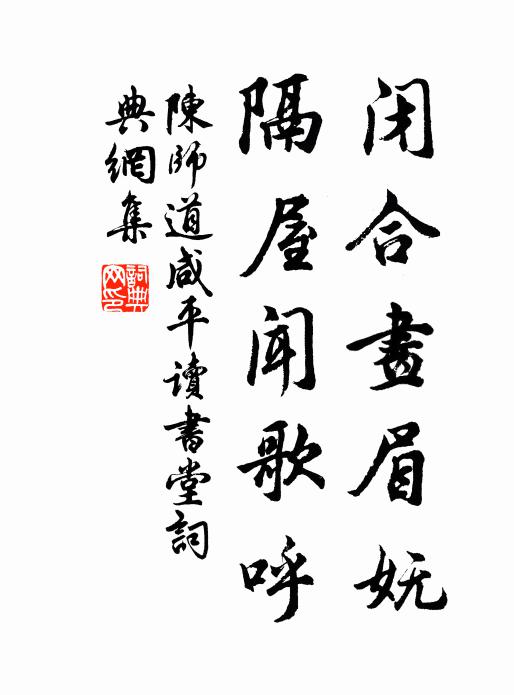 闭合畫眉妩
隔屋聞歌呼
陳師道咸平讀書堂詞
典網集
詞典网印